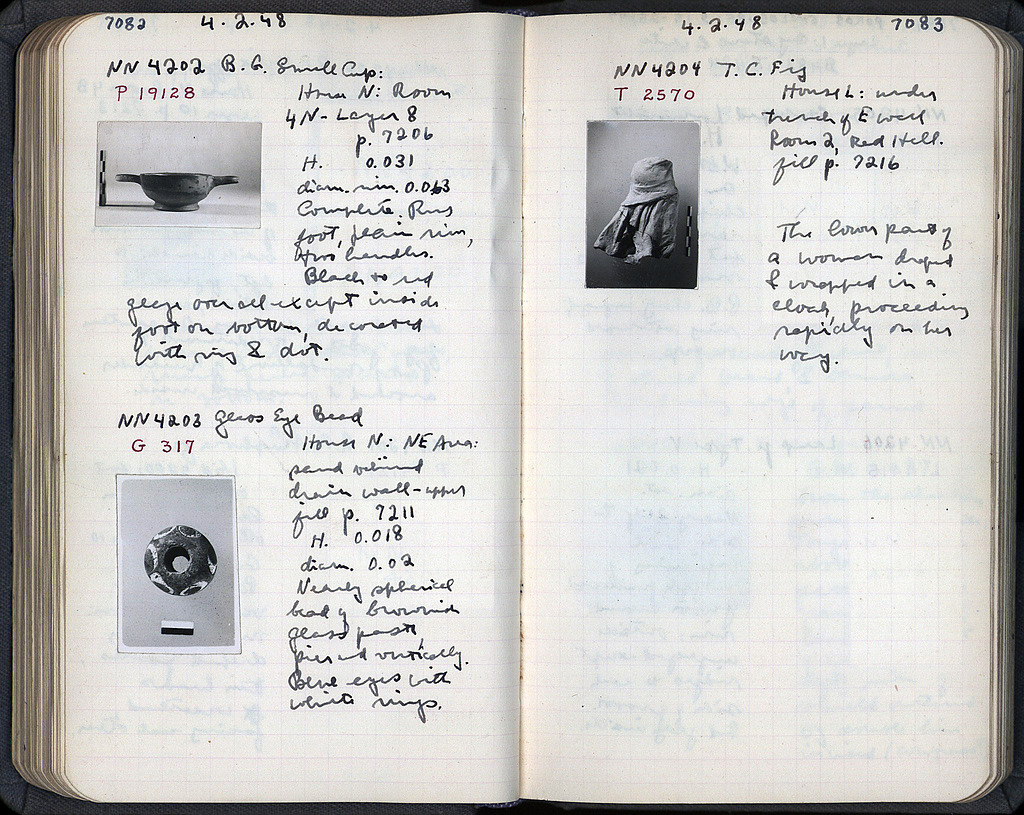 7082 4.2.48
NN 4202 B.G. Small Cup:
P 19128 House N: Room
4N - Layer 8
p. 7206
H. 0.031
diam. rim. 0.063
Complete. Ring
foot, plain rim,
two handles.
Black to red
glaze over all except inside
foot on bottom, decorated
with ring & dot.
NN 4203 Glass Eye Bead
G 317 House N: NE Area:
sand behind
drain wall - upper
fill p. 7211
H. 0.018
diam. 0.02
Nearly spherical
bead of brownish
glass paste,
pierced vertically.
Blue eyes with
white rings.
4.2.48 7083
NN 4204 T.C. Fig
T 2570 House L: under
trench of E wall
Room 2, Red Hell.
fill p. 7216
The lower part of
a woman draped
& wrapped in a
cloak, proceeding
rapidly on her
way.